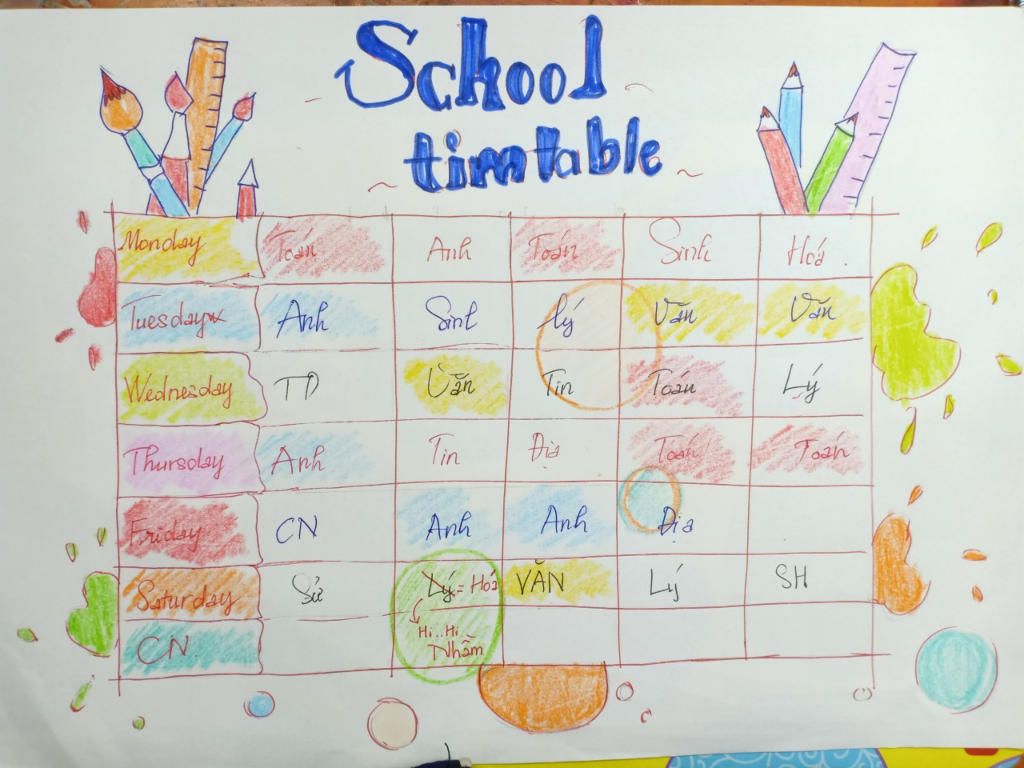 School
timtable
Monday Toán Anh Toán Sinh Hoá.
Tuesday Anh Sinh Lý Văn Văn
Wednesday TD Văn Tin Toán Lý
Thursday Anh Tin Địa Toán Toán
Friday CN Anh Anh Địa
Saturday Sử Lý = Hóa VĂN Lý SH
CN Hi..Hi..
Nhầm